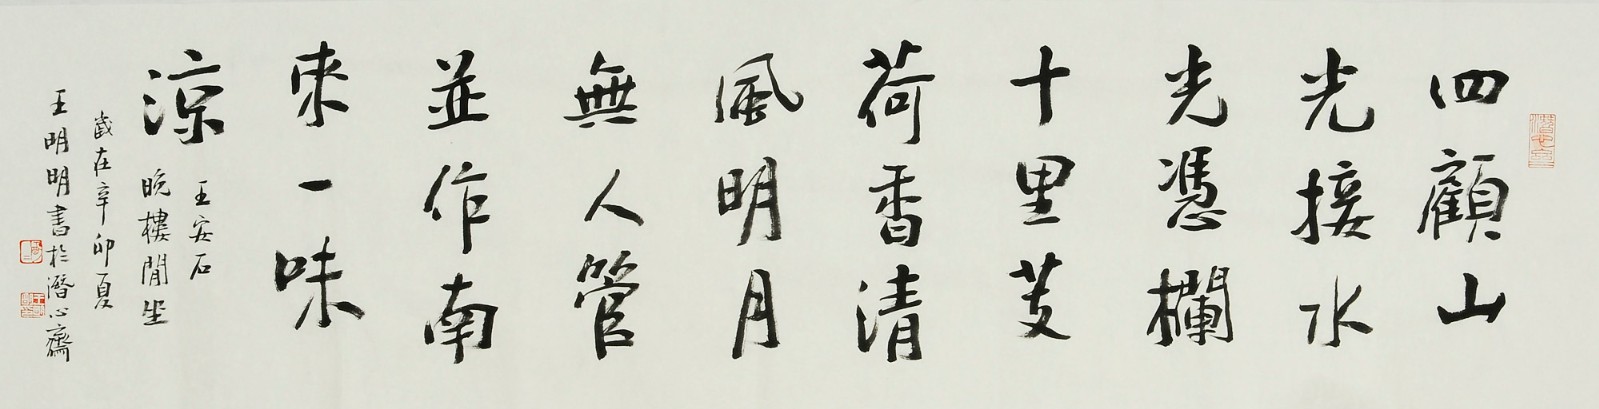 四顧山
光接水
光憑欄
十里芰
荷香清
風明月
無人管
並作南
來一味
涼
王安石
晚樓閒坐
歲在辛卯夏
王明明書於潛心齋